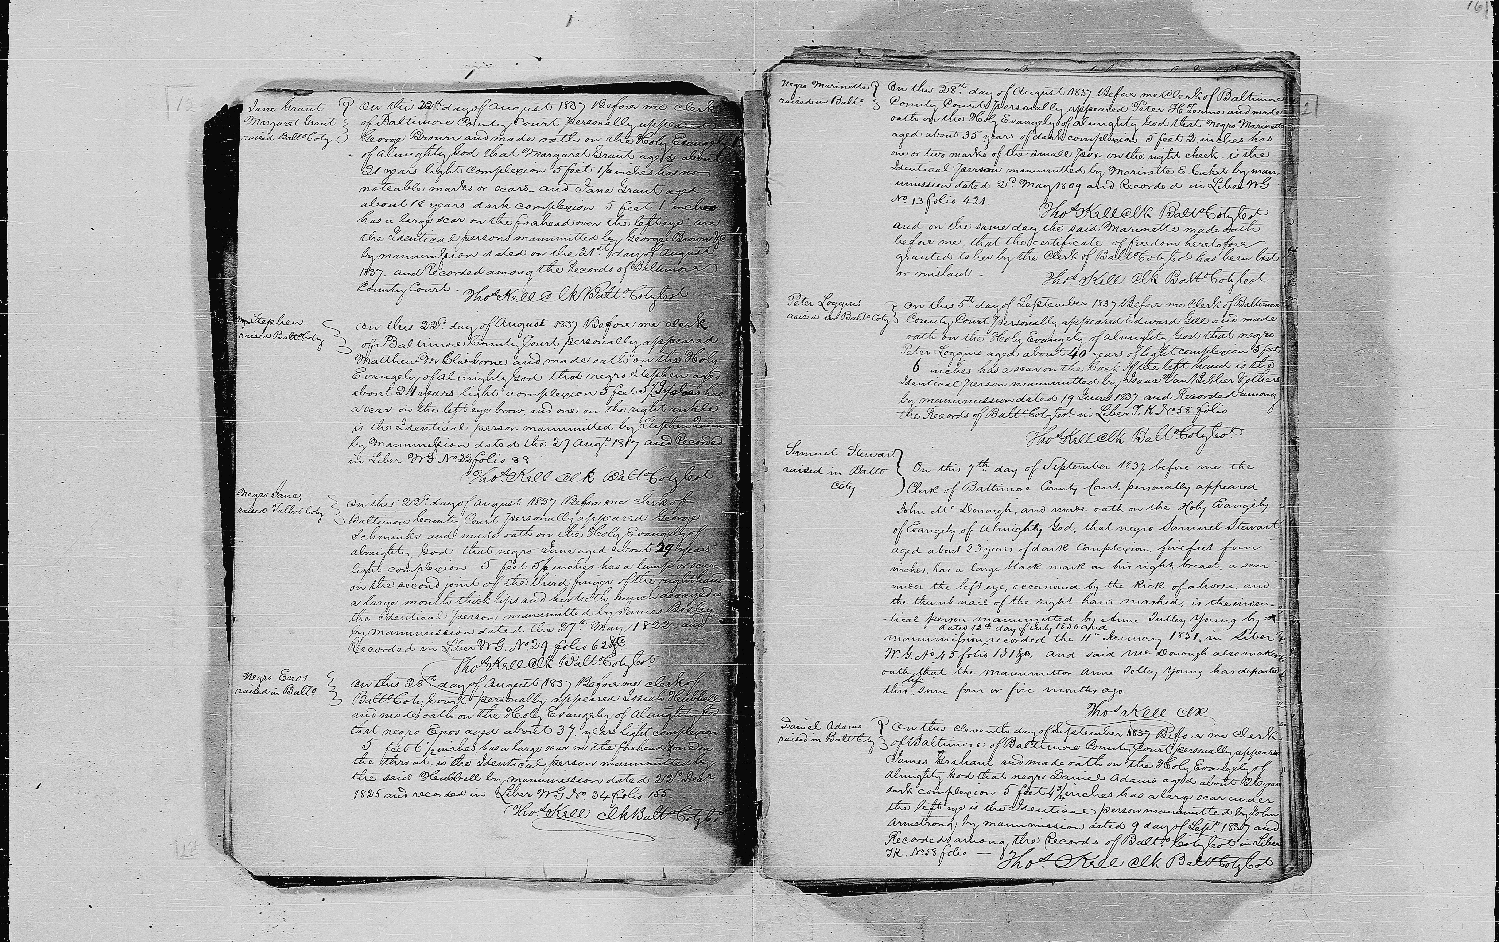 Jane Grant
Margaret Grant
raised Balto Coty
On this 22d day of August 1837 Before me clerk
of Baltimore County Court personally appeared
George Brown and made oath on the Holy Evangely
of almighty God that Margaret Grant aged about
21 years light complexion 5 feet inches has no
noticeable marks or scars and Jane Grant aged
about 18 years dark complexion 5 feet 1 inches
has a large scar on the forehead over the left eye are
the Identical persons manumitted by George Brown
by manumission dated on the 21st day of August
1837 and Recorded among the Records of Baltimore
County Court
Thos Kell Clk Balto Coty Cot
Stephen
raised Balto Coty
On this 22d day of August 1837 Before me clerk
of Baltimore County Court personally appeared
Matthew and made oath on the Holy
Evangely of almighty God that negro Stephen aged
about 24 years light complexion 5 feet inches has
a scar on the left eye brow and one on the right ankle
is the Identical person manumitted by
by Manumission dated the 27 Augt and Recorded
in Liber W.G. No folio 33
Thos Kell Clk Balto Coty Cot
Negro Jane
raised Talbot Coty
On this 22d day of August 1837 Before me clerk of
Baltimore County Court personally appeared George
and made oath on the Holy Evangely of
almighty God that negro Jane aged about 29 years
light complexion 5 feet inches has a
on the second joint of the third finger of the right hand
a large mouth thick lips and
the Identical person manumitted by James
by manumission dated the 27th May and
Recorded in Liber W.G. No 29 folio
Thos Kell Clk Balto Coty Cot
Negro Enos
raised in Balto
On this 26th day of August 1837 Before me clerk of
Balto Coty Court personally appeared
and made oath on the Holy Evangely of Almighty God
that negro Enos aged about 37 years light complexion
5 feet 6 inches has a large scar on the forehead and on
the throat is the Identical person manumitted by
the said Hubbell by manumission dated
1825 and recorded in Liber W.G. No 34 folio 155
Thos Kell Clk Balto Coty Cot
Negro Marinette
raised in Balto
On this 28th day of August 1837 Before me Clerk of Baltimore
County Court personally appeared Peter and made
oath on the Holy Evangely of almighty God that Negro Marinette
aged about 35 years of dark complexion 5 feet 3 inches has
one or two marks of the small pox on the right cheek is the
Identical person manumitted by Marinette by man-
umission dated May 1809 and Recorded in Liber W G
No 13 folio 421
Thos Kell Clk Balto Coty Cot
and on the same day the said Marinette made oath
before me that the Certificate of freedom heretofore
granted to her by the Clerk of Balto Coty Cot has been lost
or mislaid
Thos Kell Clk Balto Coty Cot
Peter Loggins
raised in Balto Coty
On this 5th day of September 1837 Before me Clerk of Baltimore
County Court personally appeared Edward and made
oath on the Holy Evangely of almighty God that negro
Peter Loggins aged about 40 years of light complexion 5 feet
6 inches has a scar on the back of the left hand is the
Identical person manumitted by Isaac Van
by manumission dated 19 June 1837 and Recorded among
the Records of Balto Coty Cot in Liber T.K. No 58 folio
Thos Kell Clk Balto Coty Cot
Samuel Stewart
raised in Balto
Coty
On this 7th day of September 1837 before me the
Clerk of Baltimore County Court, personally appeared
John Mc Donough, and made oath on the Holy Evangely
of Evangely of Almighty God, that negro Samuel Stewart
aged about 23 years of dark complexion five feet four
inches, has a large black mark on his right breast, a scar
near the left eye, occasioned by the Kick of a horse, and
the thumb nail of the right hand mashed, is the iden-
tical person manumitted by Anne Tulley Young by
dated 12th day of July 1830 and
manumission recorded the 11th January 1831, in Liber
W G No 45 folio and said Mc Donough also makes
oath that the manumittor Anne Tolley Young has departed
this life some four or five months ago
Thos Kell Clk
Daniel Adams
raised in Balto Coty
On this Eleventh day of September 1837 Before me Clerk
of Baltimore of Baltimore County Court personally appeared
James Graham and made oath on the Holy Evangely of
almighty God that negro Daniel Adams aged about years
dark complexion 5 feet 4½ inches has a large scar under
the left eye is the Identical person manumitted by John
Armstrong by manumission dated 9 day of Sept 1837 and
Recorded among the Records of Balto Coty Cot in Liber
T.K. No 58 folio
Thos Kell Clk Balto Coty Cot